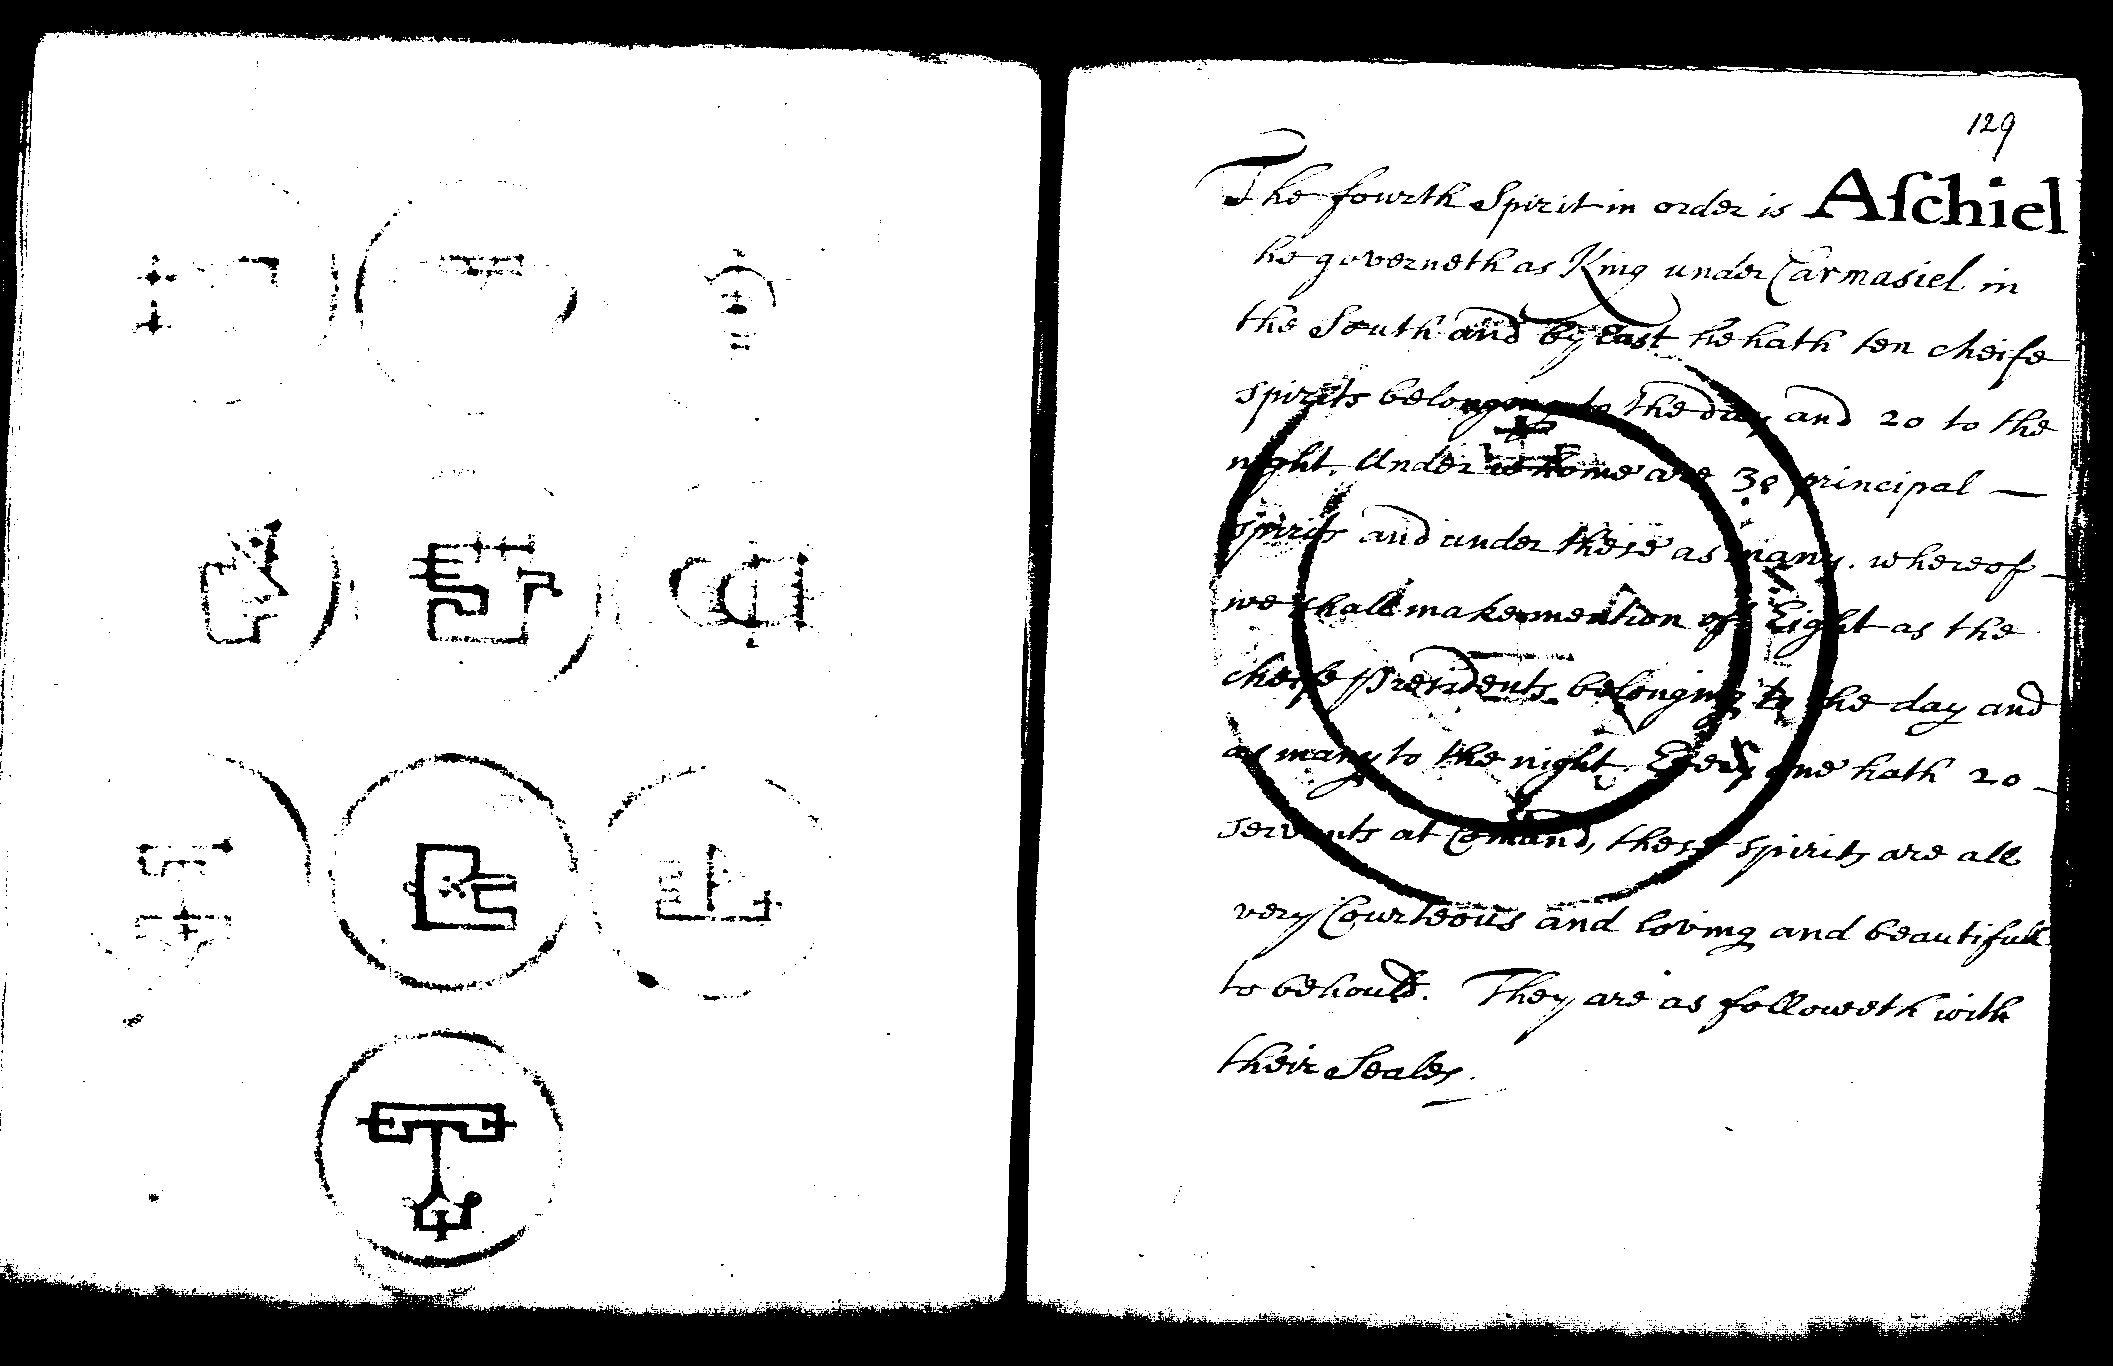 129
The fourth Spirit in order is Aſchiel
he governeth as King under Carmasiel in
the South and by east he hath ten cheife
spirits belonging to the day and 20 to the
night. Under whome are 30 principal —
spirits and under these as many. whereof
we shall make mention of Eight as the
cheife Presidents belonging to the day and
as many to the night. Every one hath 20
servants at Comand, these spirits are all
very Courteous and loving and beautifull
to behould. They are as followeth with
their Seales.